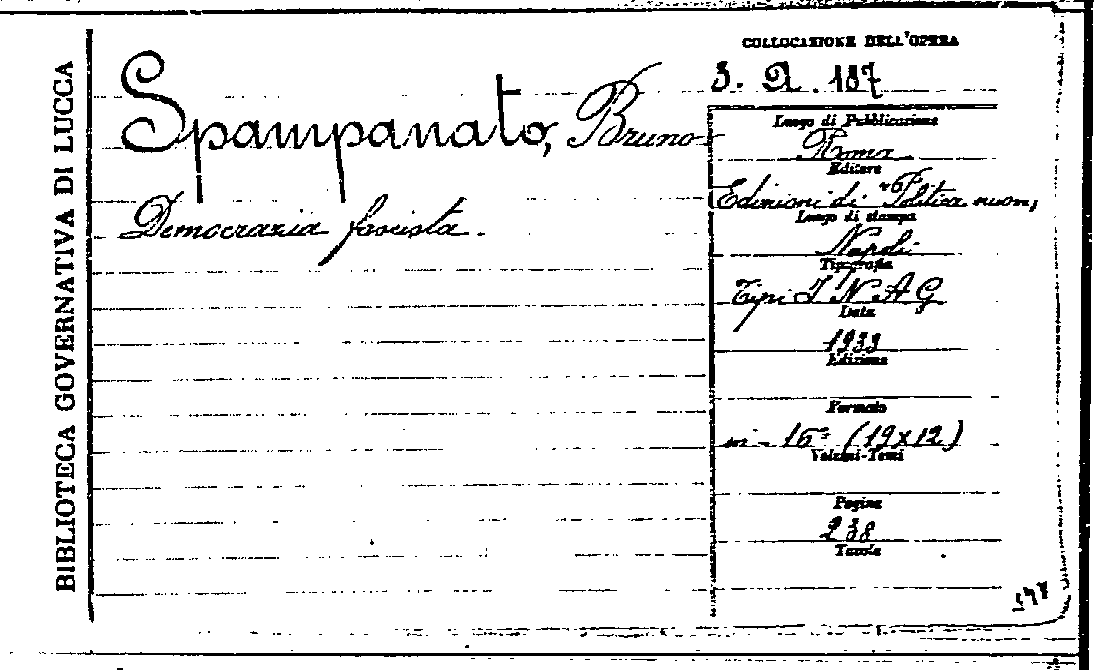 BIBLIOTECA GOVERNATIVA DI LUCCA
Spampanato, Bruno
Democrazia fascista.
COLLOCAZIONE DELL'OPERA
3. Q. 187
Luogo di Pubblicazione
Roma
Editore
Edizioni di "Politica nuova"
Luogo di stampa
Napoli
Tipografia
Tipi I N A G
Data
1933
Edizione
Formato
in-16º (19x12)
Volumi-Tomi
Pagine
238
Tavole